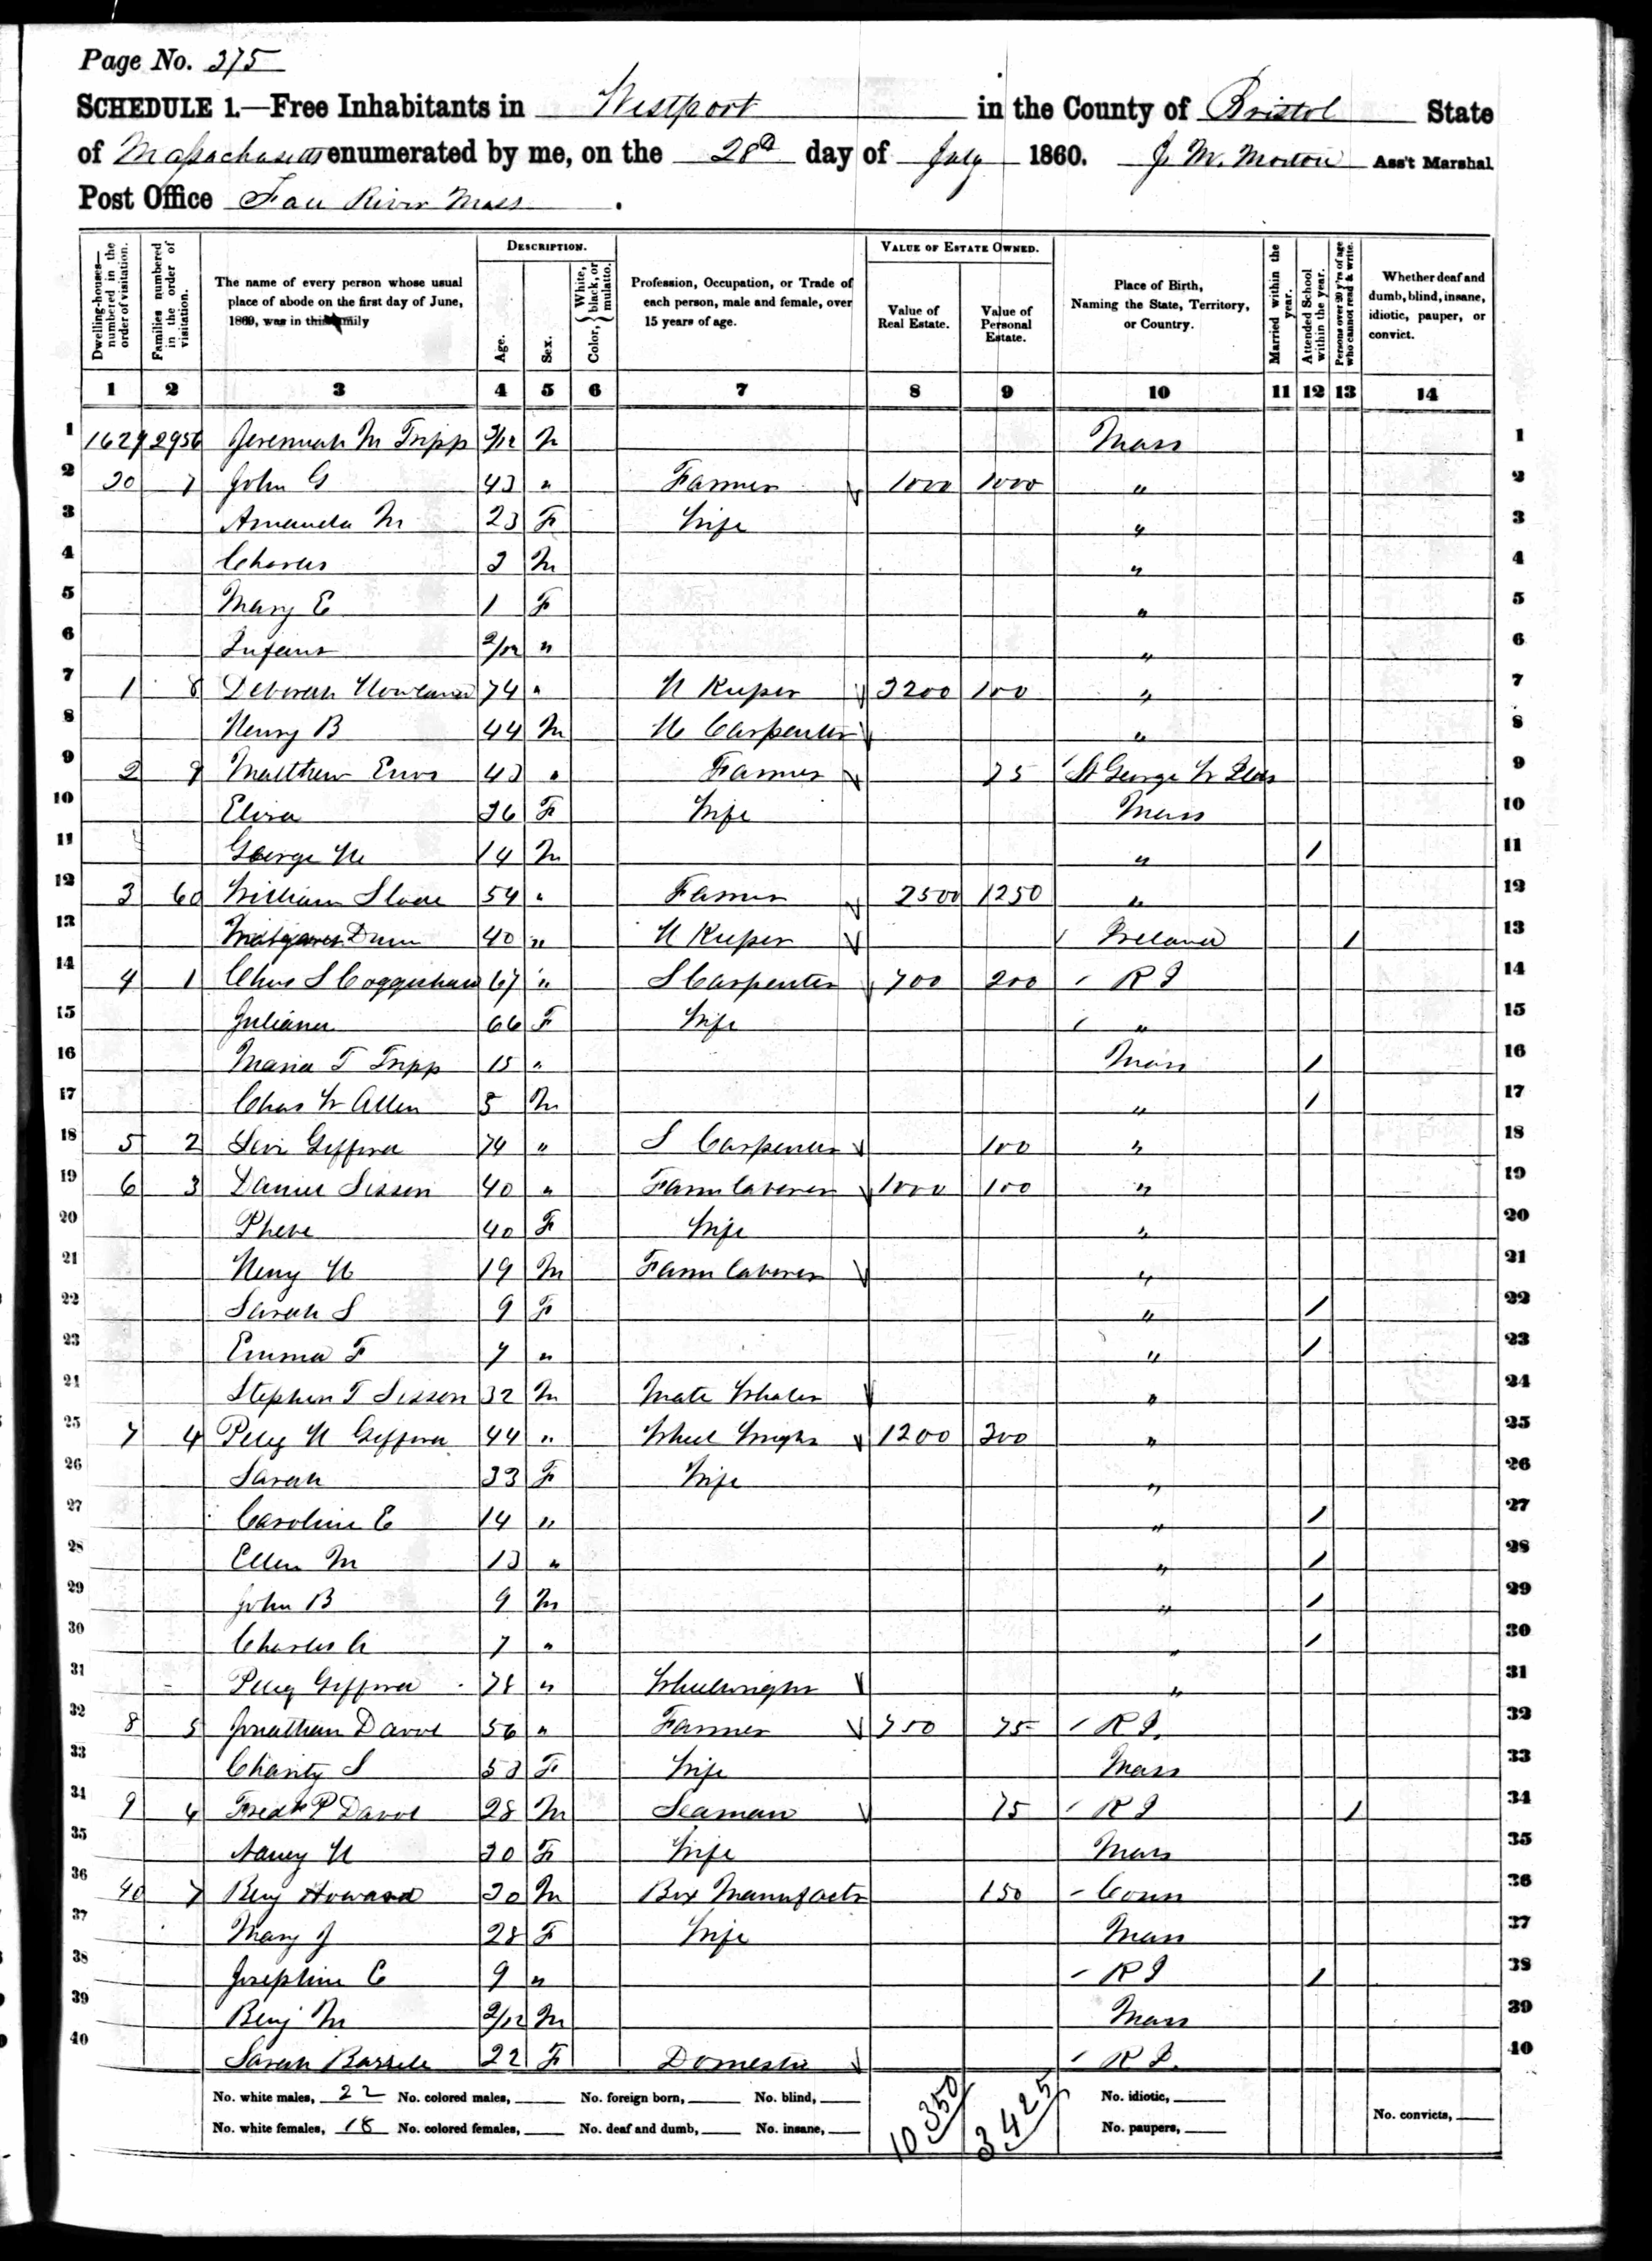 Page No. 375
SCHEDULE 1.—Free Inhabitants in Westport in the County of Bristol State
of Massachusetts enumerated by me, on the 28th day of July 1860. J. M. Morton Ass't Marshal
Post Office Fall River Mass.
Dwelling-houses—numbered in the order of visitation.
Families numbered in the order of visitation.
The name of every person whose usual place of abode on the first day of June, 1860, was in this family
DESCRIPTION.
Age.
Sex.
Color, {White, black, or mulatto.
Profession, Occupation, or Trade of each person, male and female, over 15 years of age.
VALUE OF ESTATE OWNED.
Value of Real Estate.
Value of Personal Estate.
Place of Birth, Naming the State, Territory, or Country.
Married within the year.
Attended School within the year.
Persons over 20 y'rs of age who cannot read & write.
Whether deaf and dumb, blind, insane, idiotic, pauper, or convict.
1 2 3 4 5 6 7 8 9 10 11 12 13 14
1 1629 2956 Jeremiah M Tripp /12 M Mass 1
2 30 7 John G 43 " Farmer 1000 1000 " 2
3 Amanda M 23 F Wife " 3
4 Charles 3 M " 4
5 Mary E 1 F " 5
6 Infant 2/12 " " 6
7 1 8 Deborah Howland 74 " H Keeper 3200 100 " 7
8 Henry B 44 M H Carpenter " 8
9 2 9 Matthew Enos 43 " Farmer 75 St George W 9
10 Eliza 36 F Wife Mass 10
11 George H 14 M " / 11
12 3 60 William Slade 54 " Farmer 2500 1250 " 12
13 Margaret Dunn 40 " H Keeper Ireland / 13
14 4 1 Chas S Coggeshall 67 " S Carpenter 700 200 R I 14
15 Juliana 66 F Wife " 15
16 Maria T Tripp 15 " Mass / 16
17 Chas W Allen 5 M " / 17
18 5 2 Levi Gifford 74 " S Carpenter 100 " 18
19 6 3 Daniel Sisson 40 " Farm laborer 1000 100 " 19
20 Phebe 40 F Wife " 20
21 Henry H 19 M Farm laborer " 21
22 Sarah S 9 F " / 22
23 Emma F 7 " " / 23
24 Stephen T Sisson 32 M Mate Whaler " 24
25 7 4 Peleg H Gifford 44 " Wheel Wright 1200 300 " 25
26 Sarah 33 F Wife " 26
27 Caroline E 14 " " / 27
28 Ellen M 13 " " / 28
29 John B 9 M " / 29
30 Charles A 7 " " / 30
31 Peleg Gifford 78 " Wheelwright " 31
32 8 5 Jonathan Davol 56 " Farmer 750 75 R I. 32
33 Charity S 53 F Wife Mass 33
34 9 6 Fredk P Davol 28 M Seaman 75 R I / 34
35 Nancy H 30 F Wife Mass 35
36 40 7 Benj Howard 30 M Box Manufactr 150 Conn 36
37 Mary J 28 F Wife Mass 37
38 Josephine C 9 " R I / 38
39 Benj M 2/12 M Mass 39
40 Sarah 22 F Domestic R I. 40
No. white males, 22 No. colored males, No. foreign born, No. blind, 10350 3425 No. idiotic,
No. white females, 18 No. colored females, No. deaf and dumb, No. insane, No. paupers, No. convicts,